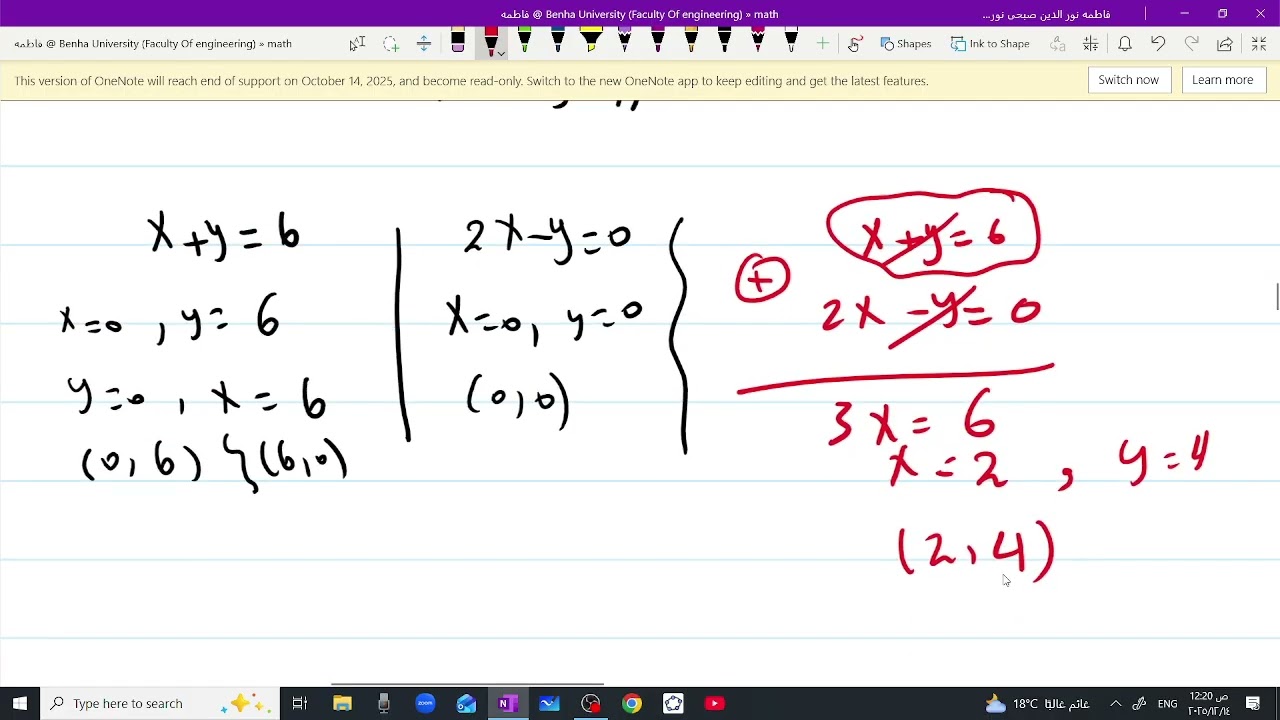 فاطمه @ Benha University (Faculty Of engineering) » math
فاطمه نور الدين صبحى نور...
فاطمه @ Benha University (Faculty Of engineering) » math
Shapes
Ink to Shape
This version of OneNote will reach end of support on October 14, 2025, and become read-only. Switch to the new OneNote app to keep editing and get the latest features.
Switch now
Learn more
x+y=6
x=0, y=6
y=0, x=6
(0,6) (6,0)
2x-y=0
x=0, y=0
(0,0)
x+y=6
+
2x-y=0
3x=6
x=2, y=4
(2,4)
Type here to search
zoom
18°C غائم غالبًا
ENG
12:20 ص
٢٠٢٥/١٢/١٤